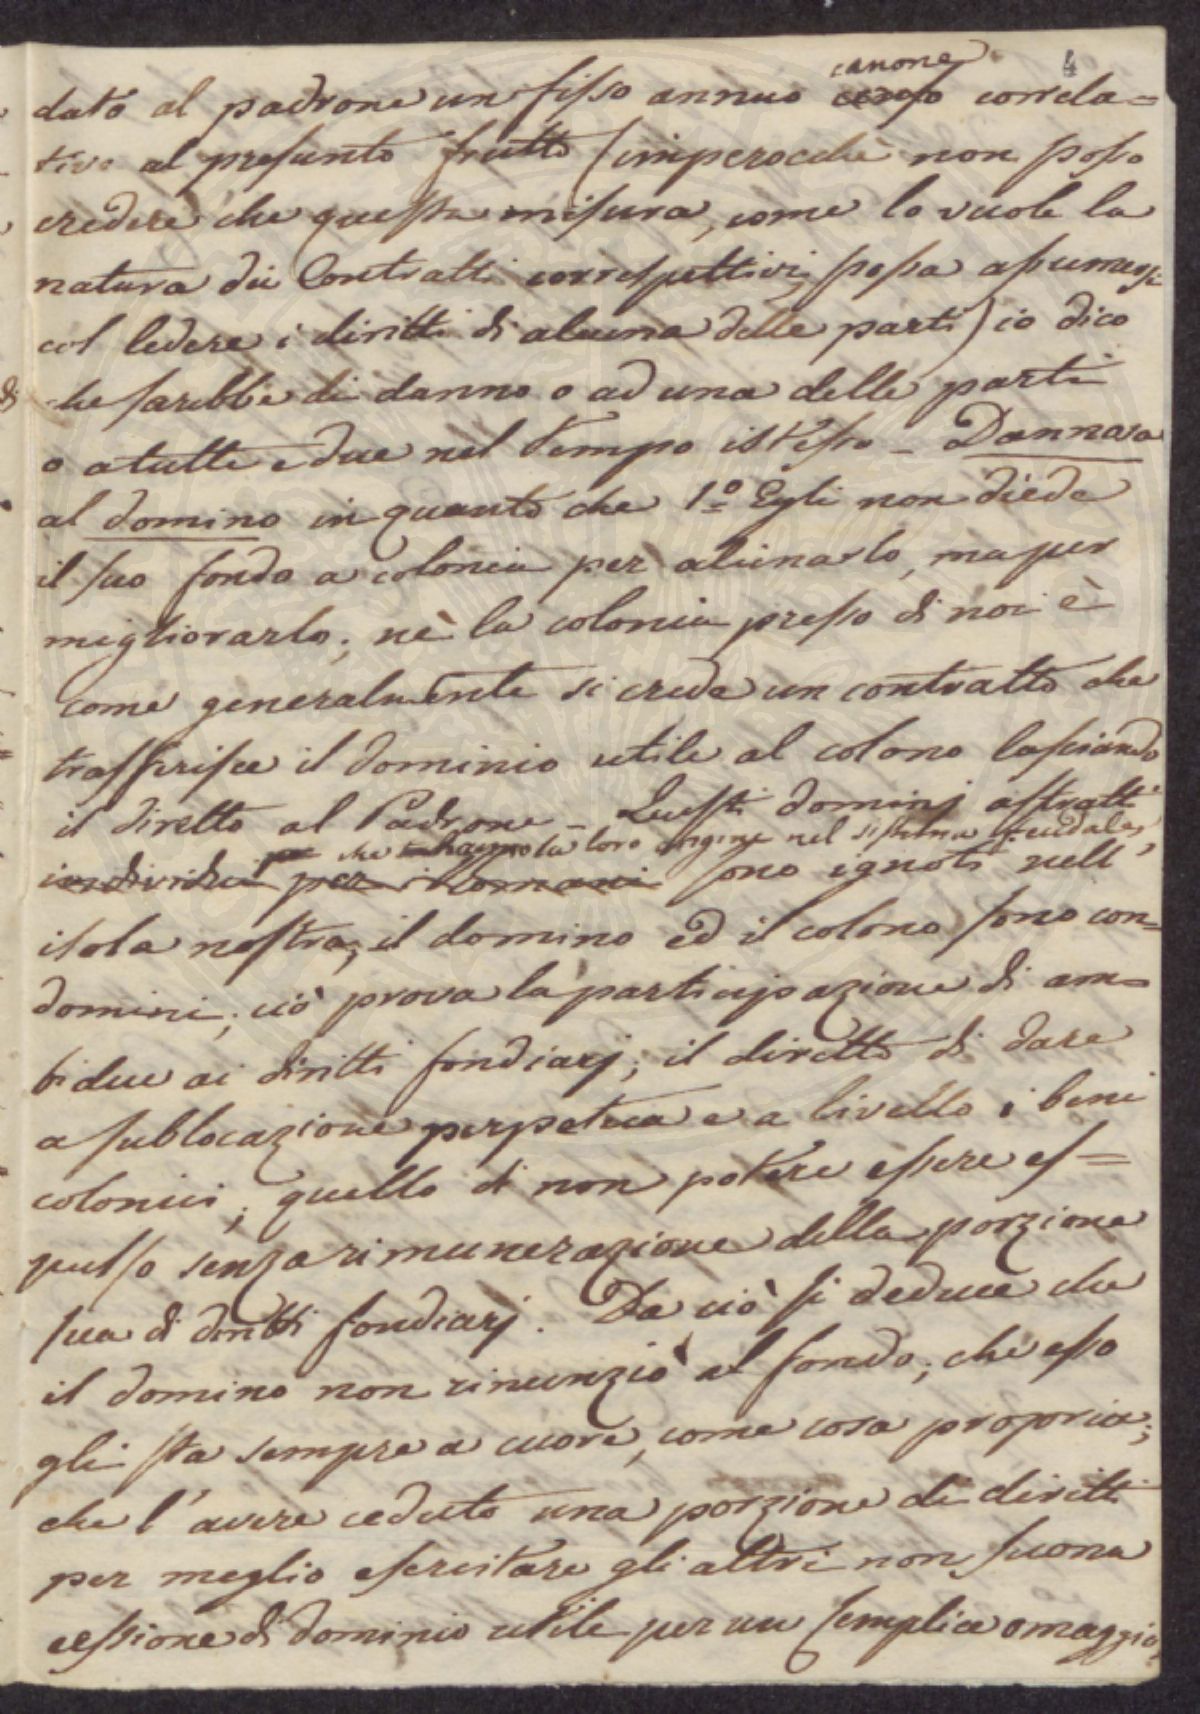 4
canone
dato al padrone un fisso annuo censo correla=
tivo al presunto frutto (imperocchè non posso
credere che questa misura, come lo vuole la
natura dei Contratti correspettivi, possa assumersi
col ledere i diritti di alcuna delle parti) io dico
che sarebbe di danno o ad una delle parti
o a tutte e due nel tempo istesso – Dannosa
al domino in quanto che 1.º Egli non diede
il suo fondo a colonia per alienarlo, ma per
migliorarlo; nè la colonia presso di noi è
come generalmente si crede un contratto che
trasferisce il dominio utile al colono lasciando
il diretto al Padrone – Questi dominj astratti
che hanno la loro origine nel sistema feudale,
individui per i Romani sono ignoti nell'
isola nostra; il domino ed il colono sono con=
domini; ciò prova la participazione di am=
bidue ai diritti fondiarj; il diritto di dare
a sublocazione perpetua e a livello i beni
colonici; quello di non potere essere es=
pulso senza rimunerazione della porzione
sua di diritti fondiarj. Da ciò si deduce che
il domino non rinunziò al fondo; che esso
gli sta sempre a cuore, come cosa propria;
che l'avere ceduto una porzione di diritti
per meglio esercitare gli altri non suona
cessione di dominio utile per un semplice omaggio,